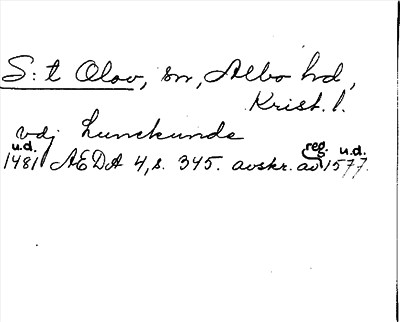 S:t Olov, sn, Albo hd,
Krist. l.
vdj Lunckunde
u.d. reg. u.d.
1481 AEDA 4, s. 345. avskr. av 1577.